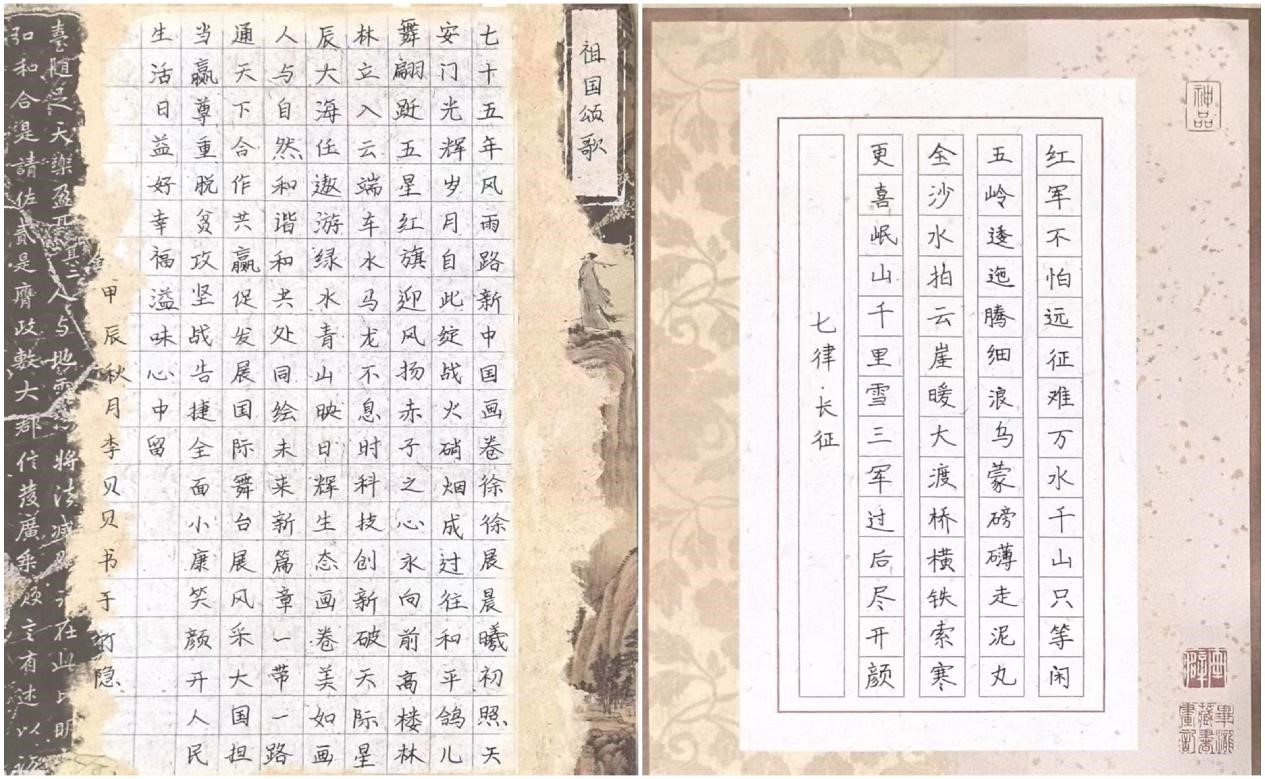 祖国颂歌
七十五年风雨路新中国画卷徐徐展晨曦初照天
安门光辉岁月自此绽战火硝烟成过往和平鸽儿
舞翩跹五星红旗迎风扬赤子之心永向前高楼林
林立入云端车水马龙不息时科技创新破天际星
辰大海任遨游绿水青山映日辉生态画卷美如画
人与自然和谐和共处同绘未来新篇章一带一路
通天下合作共赢促发展国际舞台展风采大国担
当赢尊重脱贫攻坚战告捷全面小康笑颜开人民
生活日益好幸福溢味心中留
甲辰秋月李贝贝书于隐
神品
红军不怕远征难万水千山只等闲
五岭逶迤腾细浪乌蒙磅礴走泥丸
金沙水拍云崖暖大渡桥横铁索寒
更喜岷山千里雪三军过后尽开颜
七律·长征